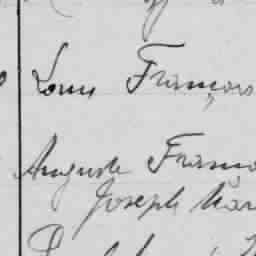 Louis François
Auguste Franço
Joseph Mar